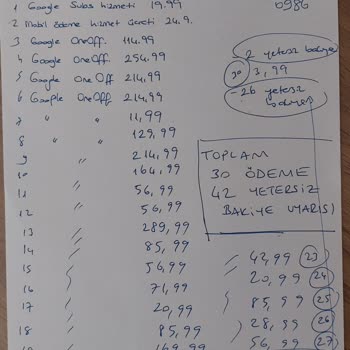 1 Google Subs hizmeti 19.99
0986
2 Mobil ödeme hizmet ücreti 24.9.
3 Google OneOff. 114.99
4 Google OneOff. 254.99
5 Google OneOff 214,99
6 Google OneOff. 214,99
8 " " 11,99
8 " " 129,99
9 " 214,99
10 " 164,99
11 " 56,99
12 " 56,99
13 " 289,99
14 " 85,99
15 " 56,99
16 71,99
17 20,99
18 85,99
169,99
2 yetersiz bakiye
30 3,99
26 yetersiz
TOPLAM
30 ÖDEME
42 YETERSİZ
BAKİYE UYARISI
" 42,99 23
20,99 24
85,99 25
28,99 26
56,99 27